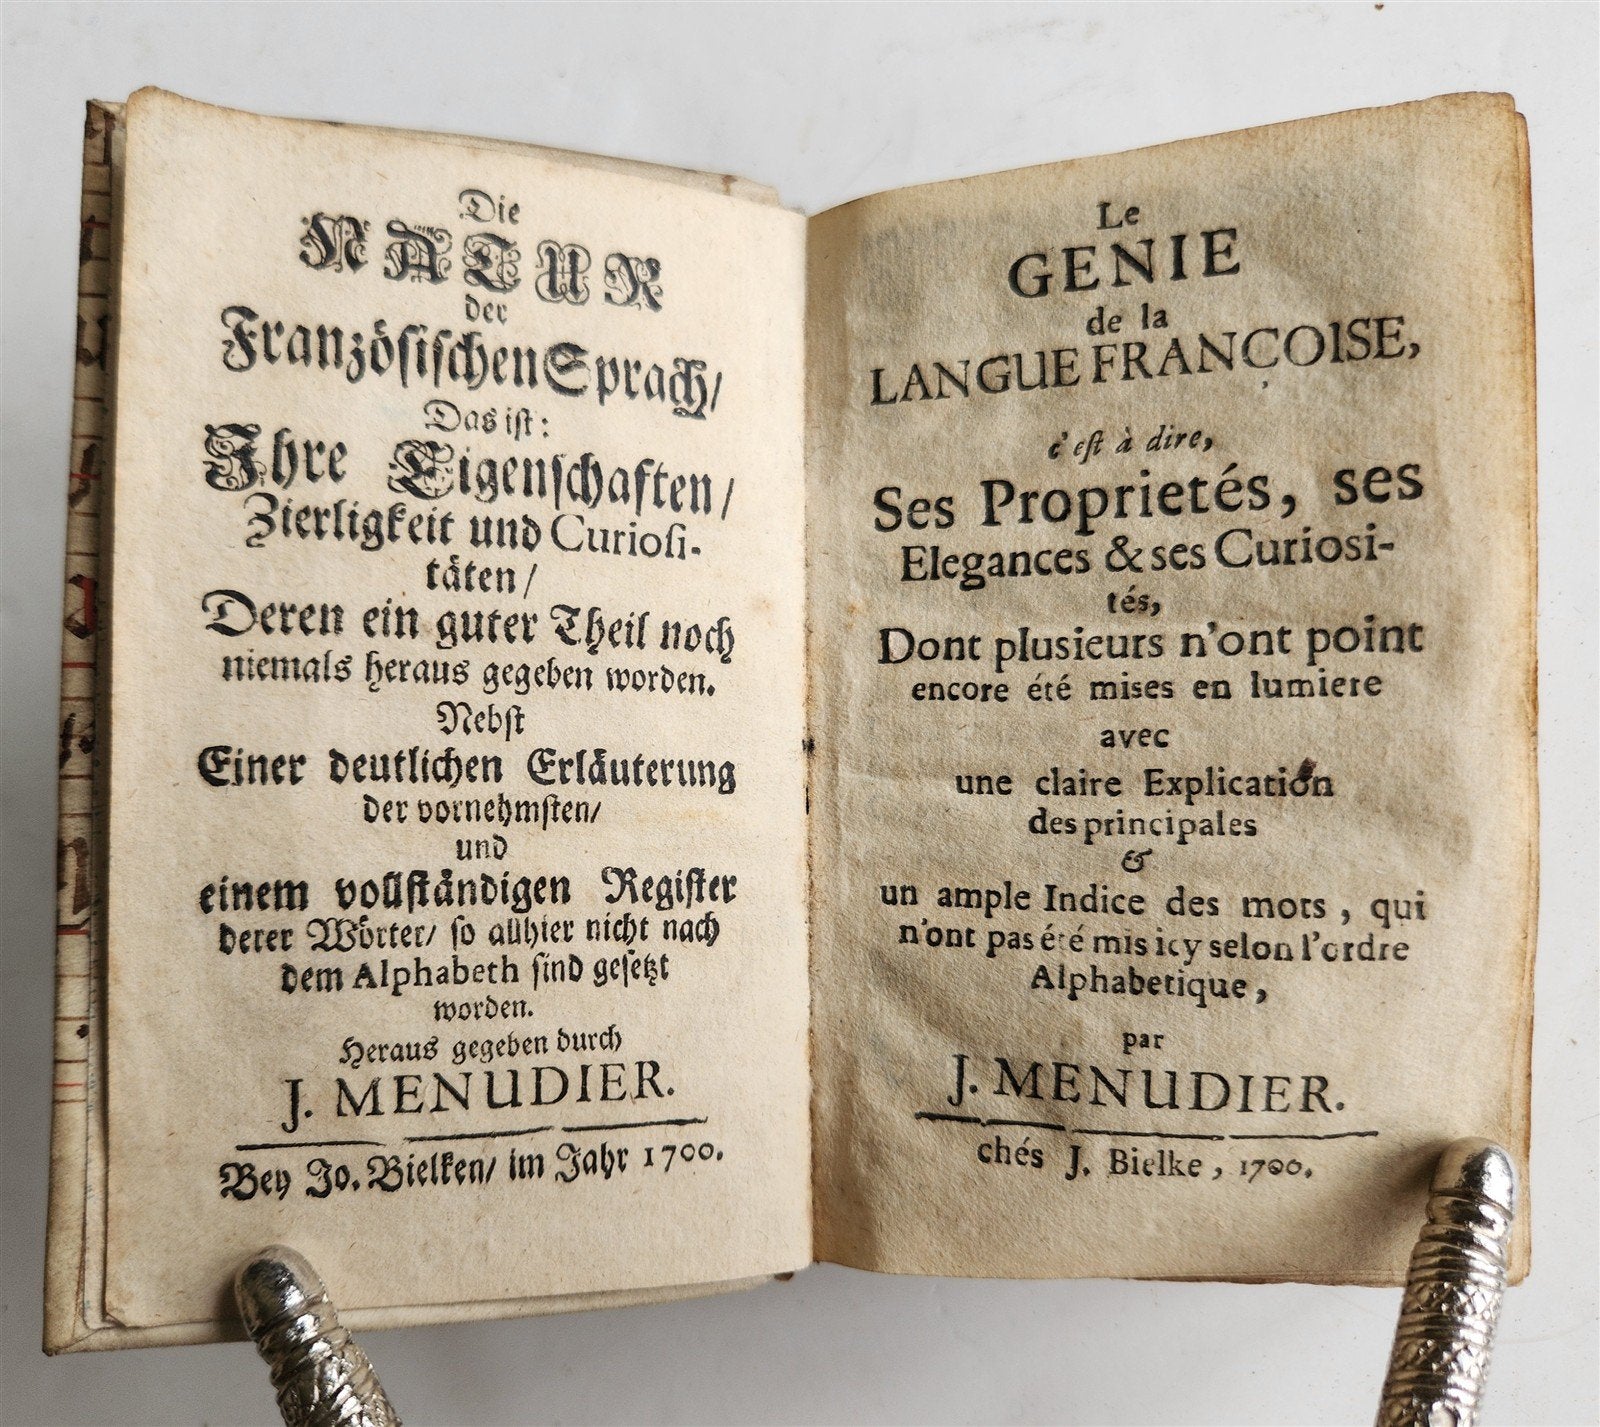 Die
NATUR
der
Französischen Sprach/
Das ist:
Ihre Eigenschaften/
Zierligkeit und Curiosi-
täten/
Deren ein guter Theil noch
niemals heraus gegeben worden.
Nebst
Einer deutlichen Erläuterung
der vornehmsten/
und
einem vollständigen Register
derer Wörter/ so allhier nicht nach
dem Alphabeth sind gesetzt
worden.
Heraus gegeben durch
J. MENUDIER.
Bey Jo. Bielken/ im Jahr 1700.
Le
GENIE
de la
LANGUE FRANÇOISE,
c'est à dire,
Ses Proprietés, ses
Elegances & ses Curiosi-
tés,
Dont plusieurs n'ont point
encore été mises en lumiere
avec
une claire Explication
des principales
&
un ample Indice des mots, qui
n'ont pas été mis icy selon l'ordre
Alphabetique,
par
J. MENUDIER.
chés J. Bielke, 1700.